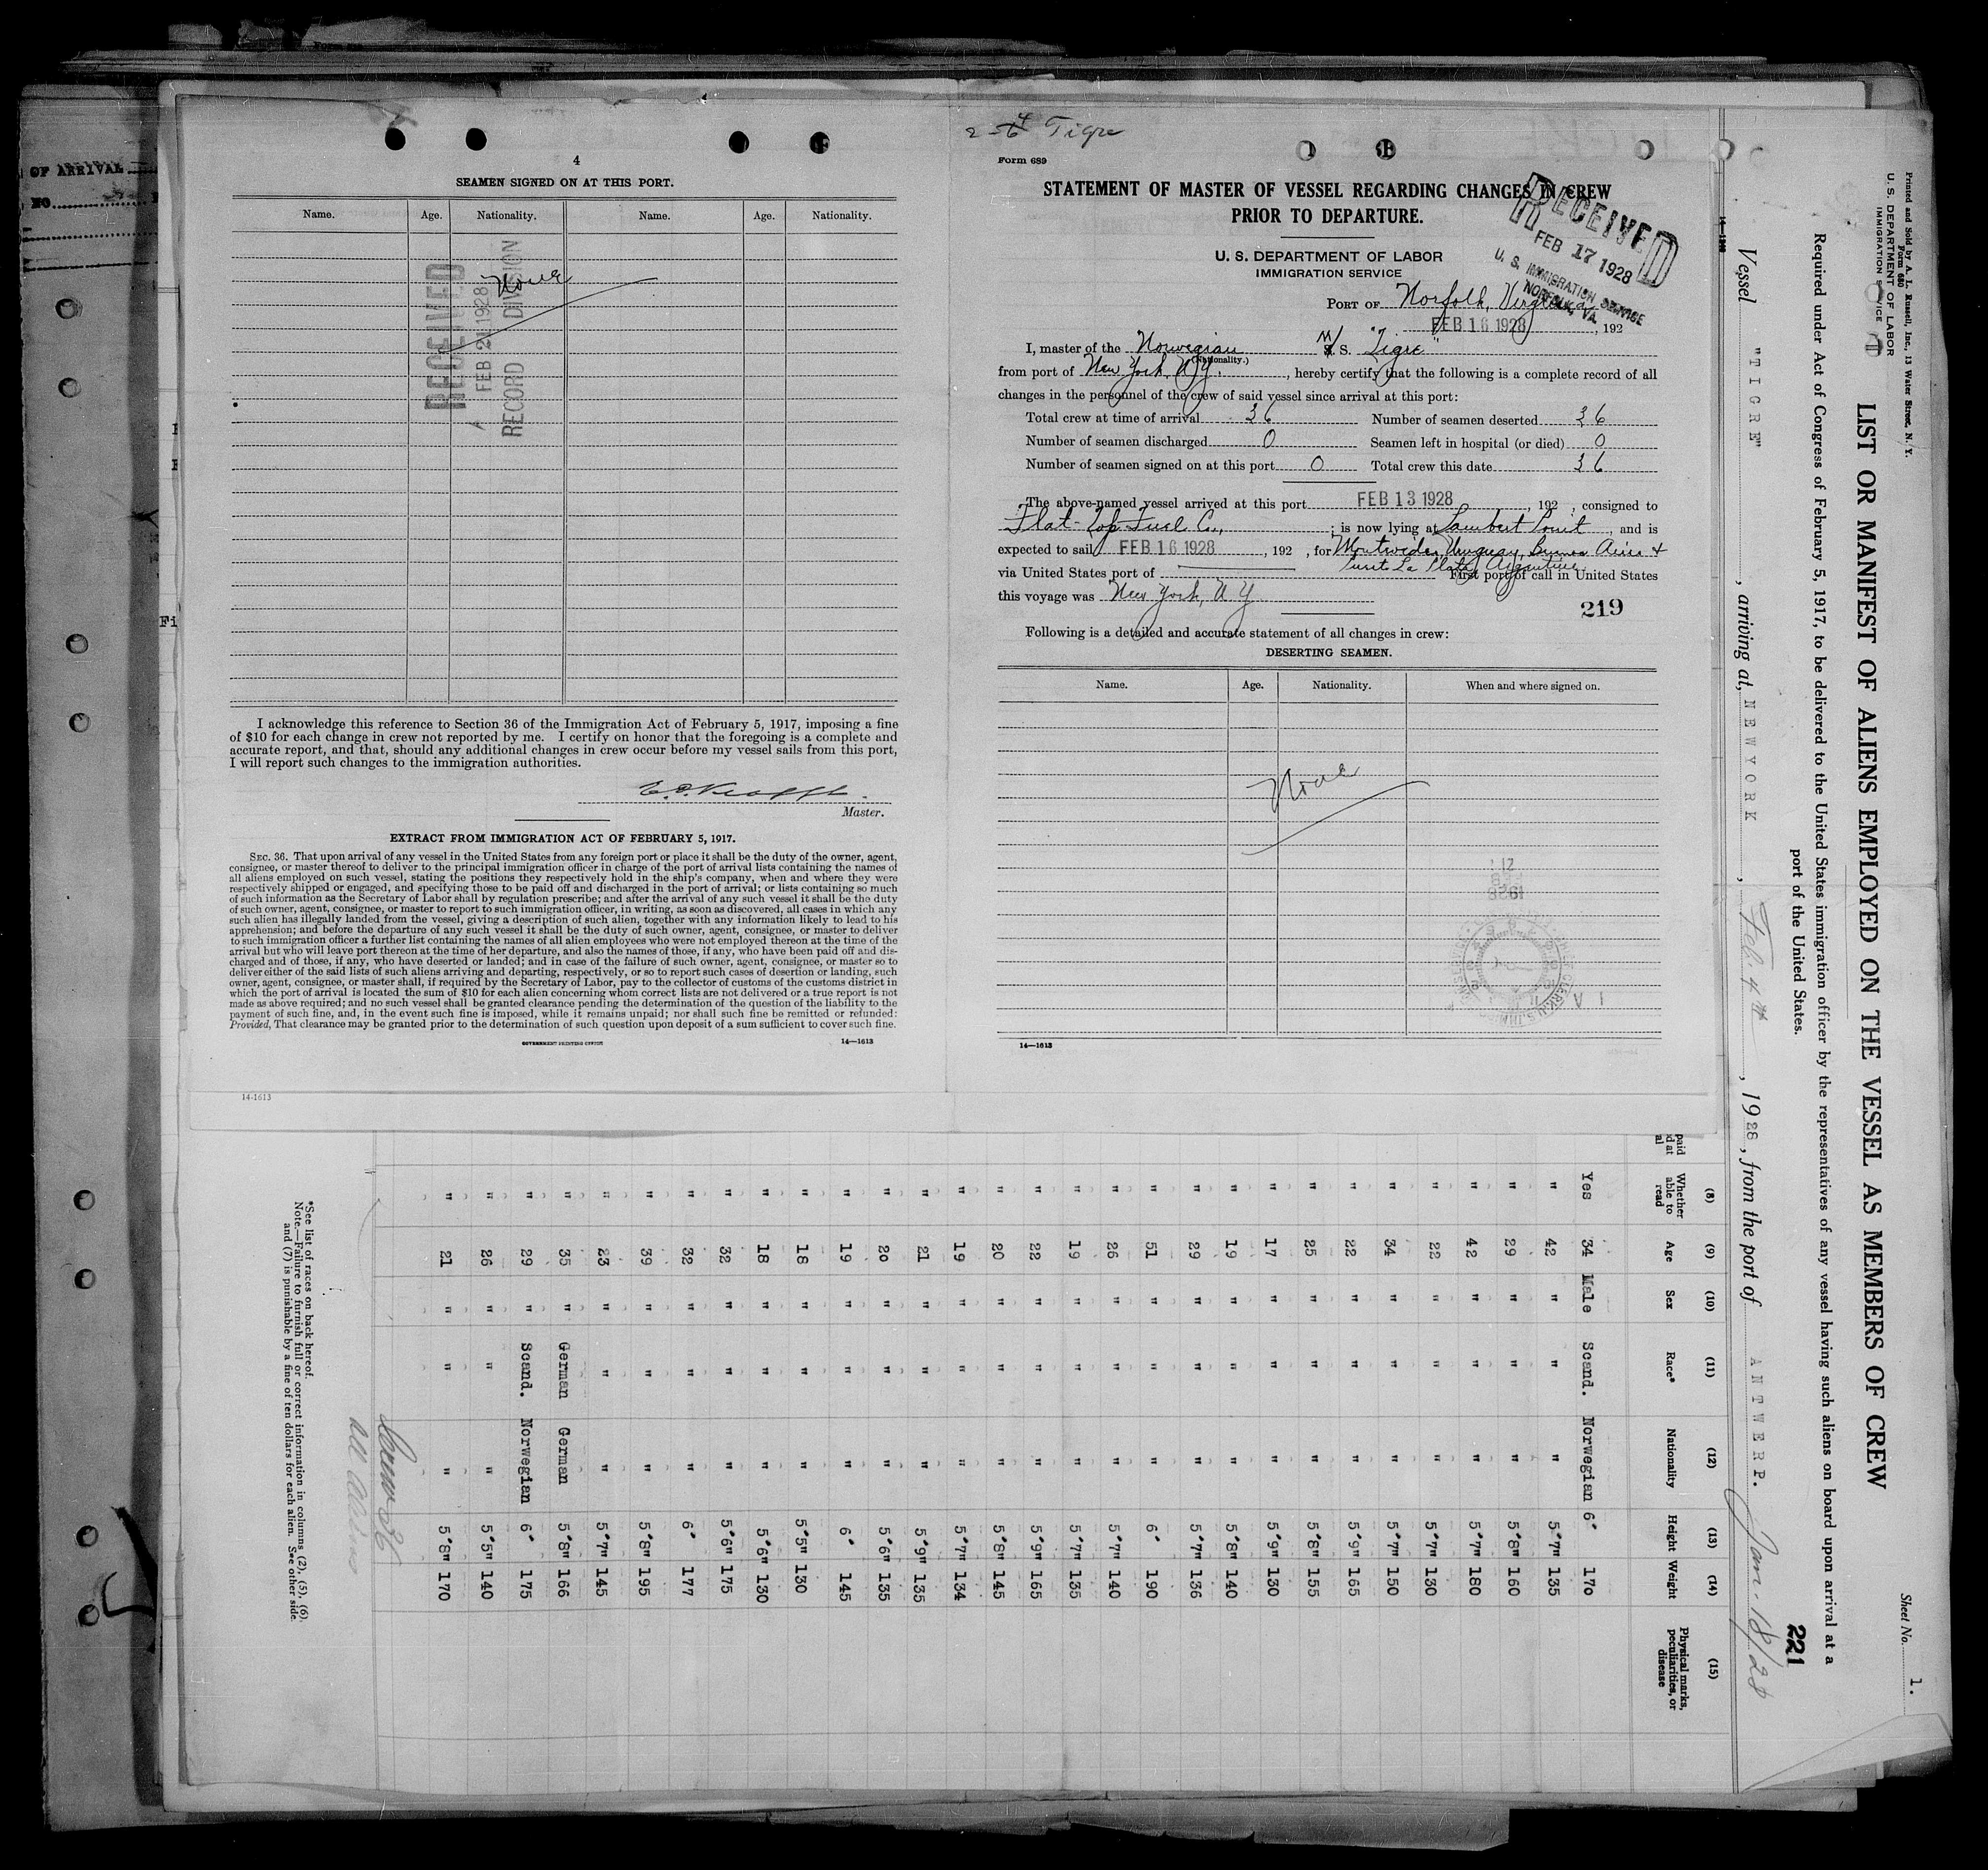 4
SEAMEN SIGNED ON AT THIS PORT.
Name. Age. Nationality. Name. Age. Nationality.
None
RECEIVED
FEB 21 1928
RECORD DIVISION
I acknowledge this reference to Section 36 of the Immigration Act of February 5, 1917, imposing a fine
of $10 for each change in crew not reported by me. I certify on honor that the foregoing is a complete and
accurate report, and that, should any additional changes in crew occur before my vessel sails from this port,
I will report such changes to the immigration authorities.
Master.
EXTRACT FROM IMMIGRATION ACT OF FEBRUARY 5, 1917.
SEC. 36. That upon arrival of any vessel in the United States from any foreign port or place it shall be the duty of the owner, agent,
consignee, or master thereof to deliver to the principal immigration officer in charge of the port of arrival lists containing the names of
all aliens employed on such vessel, stating the positions they respectively hold in the ship's company, when and where they were
respectively shipped or engaged, and specifying those to be paid off and discharged in the port of arrival; or lists containing so much
of such information as the Secretary of Labor shall by regulation prescribe; and after the arrival of any such vessel it shall be the duty
of such owner, agent, consignee, or master to report to such immigration officer, in writing, as soon as discovered, all cases in which any
such alien has illegally landed from the vessel, giving a description of such alien, together with any information likely to lead to his
apprehension; and before the departure of any such vessel it shall be the duty of such owner, agent, consignee, or master to deliver
to such immigration officer a further list containing the names of all alien employees who were not employed thereon at the time of the
arrival but who will leave port thereon at the time of her departure, and also the names of those, if any, who have been paid off and dis-
charged and of those, if any, who have deserted or landed; and in case of the failure of such owner, agent, consignee, or master so to
deliver either of the said lists of such aliens arriving and departing, respectively, or so to report such cases of desertion or landing, such
owner, agent, consignee, or master shall, if required by the Secretary of Labor, pay to the collector of customs of the customs district in
which the port of arrival is located the sum of $10 for each alien concerning whom correct lists are not delivered or a true report is not
made as above required; and no such vessel shall be granted clearance pending the determination of the question of the liability to the
payment of such fine, and, in the event such fine is imposed, while it remains unpaid; nor shall such fine be remitted or refunded:
Provided, That clearance may be granted prior to the determination of such question upon deposit of a sum sufficient to cover such fine.
GOVERNMENT PRINTING OFFICE 14—1613
14-1613
Tigre
Form 689
STATEMENT OF MASTER OF VESSEL REGARDING CHANGES IN CREW
PRIOR TO DEPARTURE.
U. S. DEPARTMENT OF LABOR
IMMIGRATION SERVICE
RECEIVED
FEB 17 1928
U. S. IMMIGRATION SERVICE
NORFOLK, VA.
PORT OF Norfolk, Virginia
FEB 16 1928, 192
I, master of the Norwegian M/S. "Tigre"
(Nationality.)
from port of New York, N.Y., hereby certify that the following is a complete record of all
changes in the personnel of the crew of said vessel since arrival at this port:
Total crew at time of arrival 36 Number of seamen deserted 36
Number of seamen discharged 0 Seamen left in hospital (or died) 0
Number of seamen signed on at this port 0 Total crew this date 36
The above-named vessel arrived at this port FEB 13 1928, 192 , consigned to
Flat-Top Fuel Co., ; is now lying at Lambert Point, and is
expected to sail FEB 16 1928, 192 , for Montevideo, Uruguay, Buenos Aires +
La Plata, Argentine.
via United States port of First port of call in United States
this voyage was New York, N Y
219
Following is a detailed and accurate statement of all changes in crew:
DESERTING SEAMEN.
Name. Age. Nationality. When and where signed on.
None
14—1613
Printed and Sold by A. L. Russell, Inc., 13 Water Street, N. Y.
Form 680
U. S. DEPARTMENT OF LABOR
IMMIGRATION SERVICE
Sheet No. 1.
LIST OR MANIFEST OF ALIENS EMPLOYED ON THE VESSEL AS MEMBERS OF CREW
Required under Act of Congress of February 5, 1917, to be delivered to the United States immigration officer by the representatives of any vessel having such aliens on board upon arrival at a
port of the United States.
221
Vessel "TIGRE", arriving at, NEWYORK, Feb. 4th, 1928, from the port of ANTWERP. Jan-18/28
(8) (9) (10) (11) (12) (13) (14) (15)
Whether able to read Age Sex Race* Nationality Height Weight Physical marks, peculiarities, or disease
Yes 34 Male Scand. Norwegian 6" 170
" 42 " " " 5"7" 135
" 29 " " " 5"8" 160
" 42 " " " 5"7" 180
" 22 " " " 5"7" 130
" 34 " " " 5"7" 150
" 22 " " " 5"9" 165
" 25 " " " 5"8" 155
" 17 " " " 5"9" 130
" 19 " " " 5"8" 140
" 29 " " " 5"7" 136
" 51 " " " 6" 190
" 26 " " " 5"7" 140
" 19 " " " 5"7" 135
" 22 " " " 5"9" 165
" 20 " " " 5"8" 145
" 19 " " " 5"7" 134
" 21 " " " 5"9" 135
" 20 " " " 5"6" 135
" 19 " " " 6" 145
" 18 " " " 5"5" 130
" 18 " " " 5"6" 130
" 32 " " " 5"6" 175
" 32 " " " 6" 177
" 39 " " " 5"8" 195
" 23 " " " 5"7" 145
" 35 " German German 5"8" 166
" 29 " Scand. Norwegian 6" 175
" 26 " " " 5"5" 140
" 21 " " " 5"8" 170
Crew 36
All aliens
*See list of races on back hereof.
Note.—Failure to furnish full or correct information in columns (2), (5), (6),
and (7) is punishable by a fine of ten dollars for each alien. See other side.
OF ARRIVAL
NO.